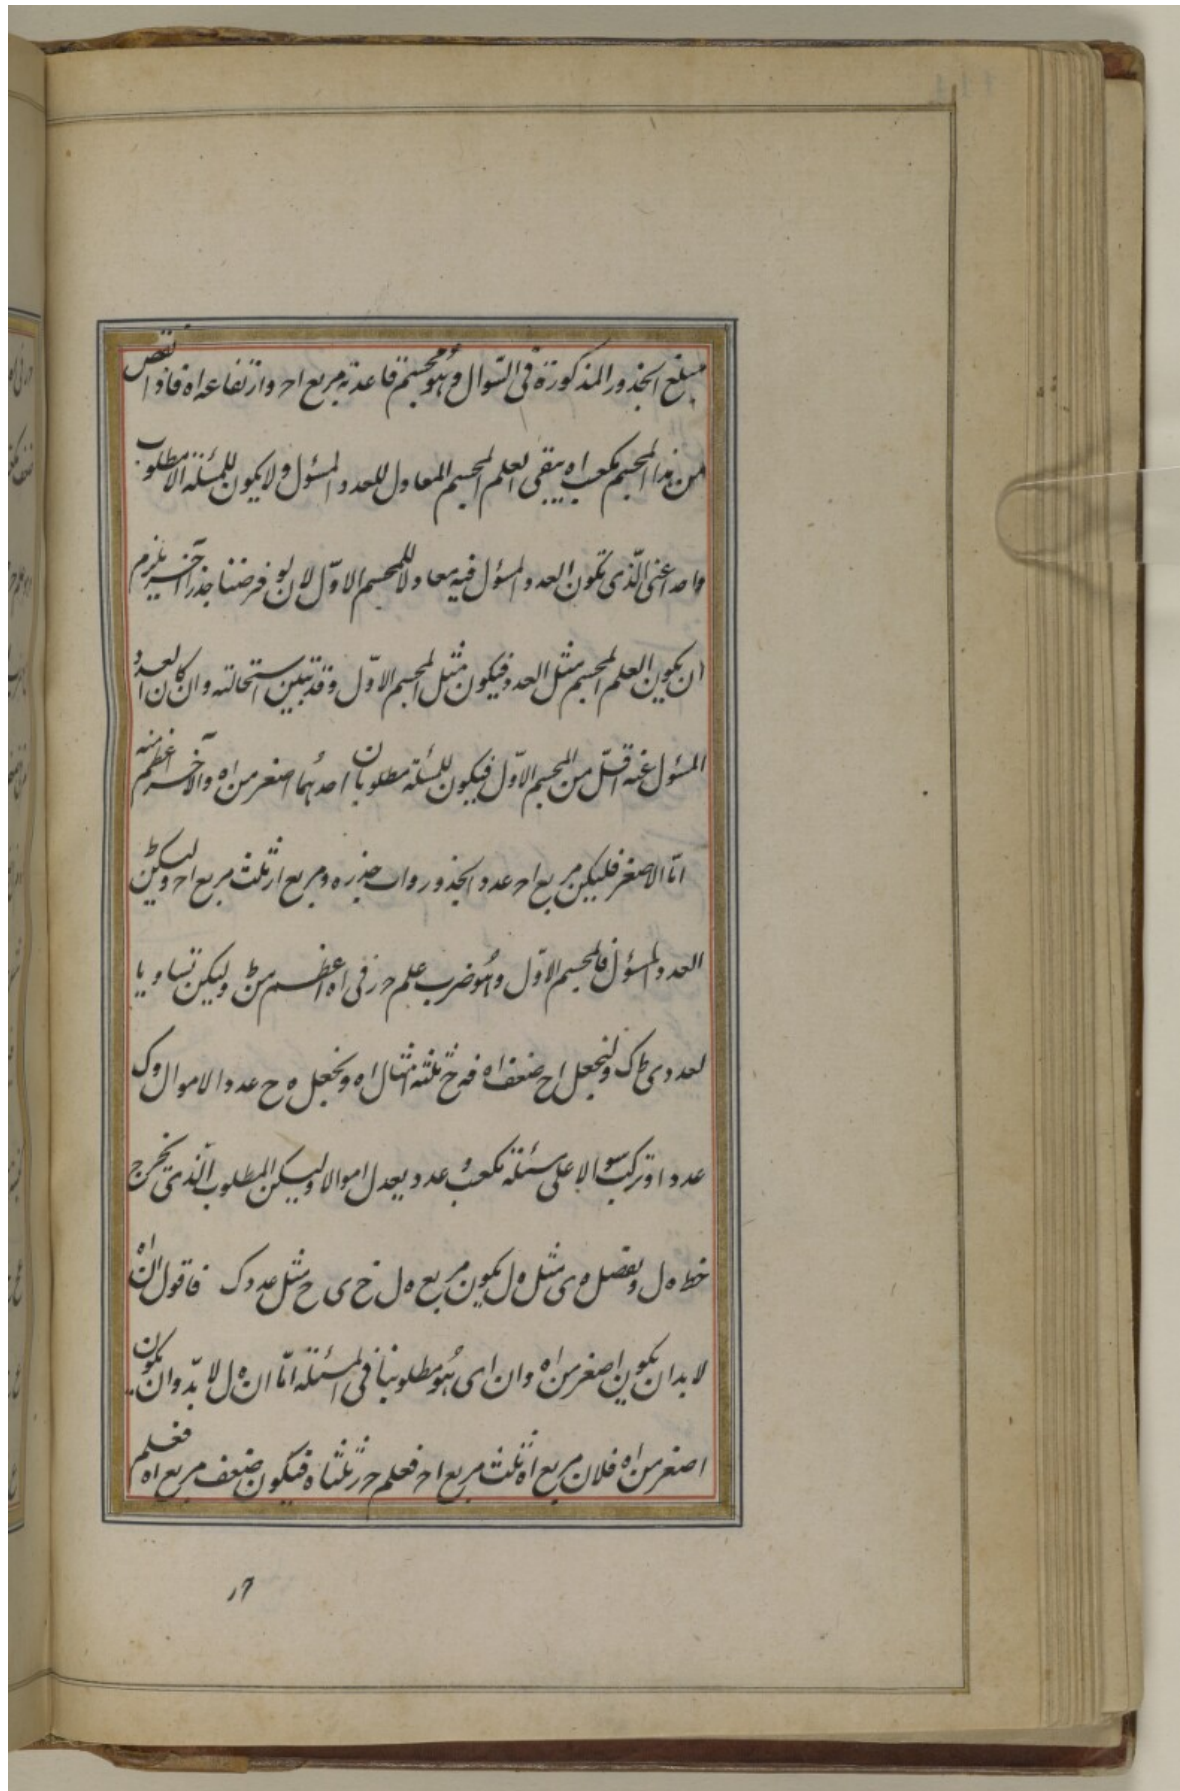 مبلغ الجذور المذكورة فى السوال وهو مجسم قاعدته مربع اح وارتفاعه اه فاذا نقص
من هذا المجسم مكعب اه يبقى العلم المجسم المعادل للعدد المسؤل ولا يكون للمسئلة الا مطلوب
واحد اعنى الّذى يكون العدد المسؤل فيه معادلا للمجسم الاوّل لان لو فرضنا جذرا آخر يلزم
ان يكون العلم المجسم مثل العدد فيكون مثل المجسم الاوّل وقد تبين استحالته وان كان العدد
المسؤل عنه اقلّ من المجسم الاوّل فيكون للمسئلة مطلوبان احدهما اصغر من اه والآخر اعظم منه
امّا الاصغر فليكن مربع اح عدد الجذور واب جذره ومربع ار ثلث مربع اح وليكن
العدد المسؤل فالمجسم الاوّل وهو ضرب علم حر فى اه اعظم من وليكن تساويا
لعدد ى ط ك ولنجعل اح ضعف اه فه ح ثلثة امثال اه ونجعل ه ح عدد الاموال وك
عددا وتركب سوالا على مسئلة مكعب وعدد يعدل اموالا وليكن المطلوب الّذى يخرج
خط ه ل ونفصل ه ى مثل ه ل يكون مربع ه ل فى ح ى ح مثل عدد ك فاقول ان اه
لا بد ان يكون اصغر من اه وان اى هو مطلوبنا فى المسئلة امّا ان ه ل لا بدّ وان يكون
اصغر من اه فلان مربع اه ثلث مربع اح فعلم حر ثلثاه فيكون ضعف مربع اه فعلم